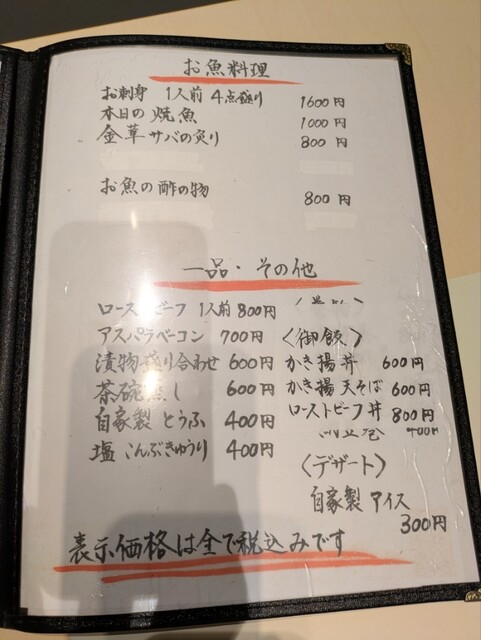 お魚料理
お刺身 1人前 4点盛り 1600円
本日の焼魚 1000円
金華サバの炙り 800円
お魚の酢の物 800円
一品・その他
ローストビーフ 1人前 800円
アスパラベーコン 700円
漬物盛り合わせ 600円
茶碗蒸し 600円
自家製とうふ 400円
塩こんぶきゅうり 400円
〈御飯〉
かき揚丼 600円
かき揚天そば 600円
ローストビーフ丼 800円
400円
〈デザート〉
自家製アイス
300円
表示価格は全て税込みです